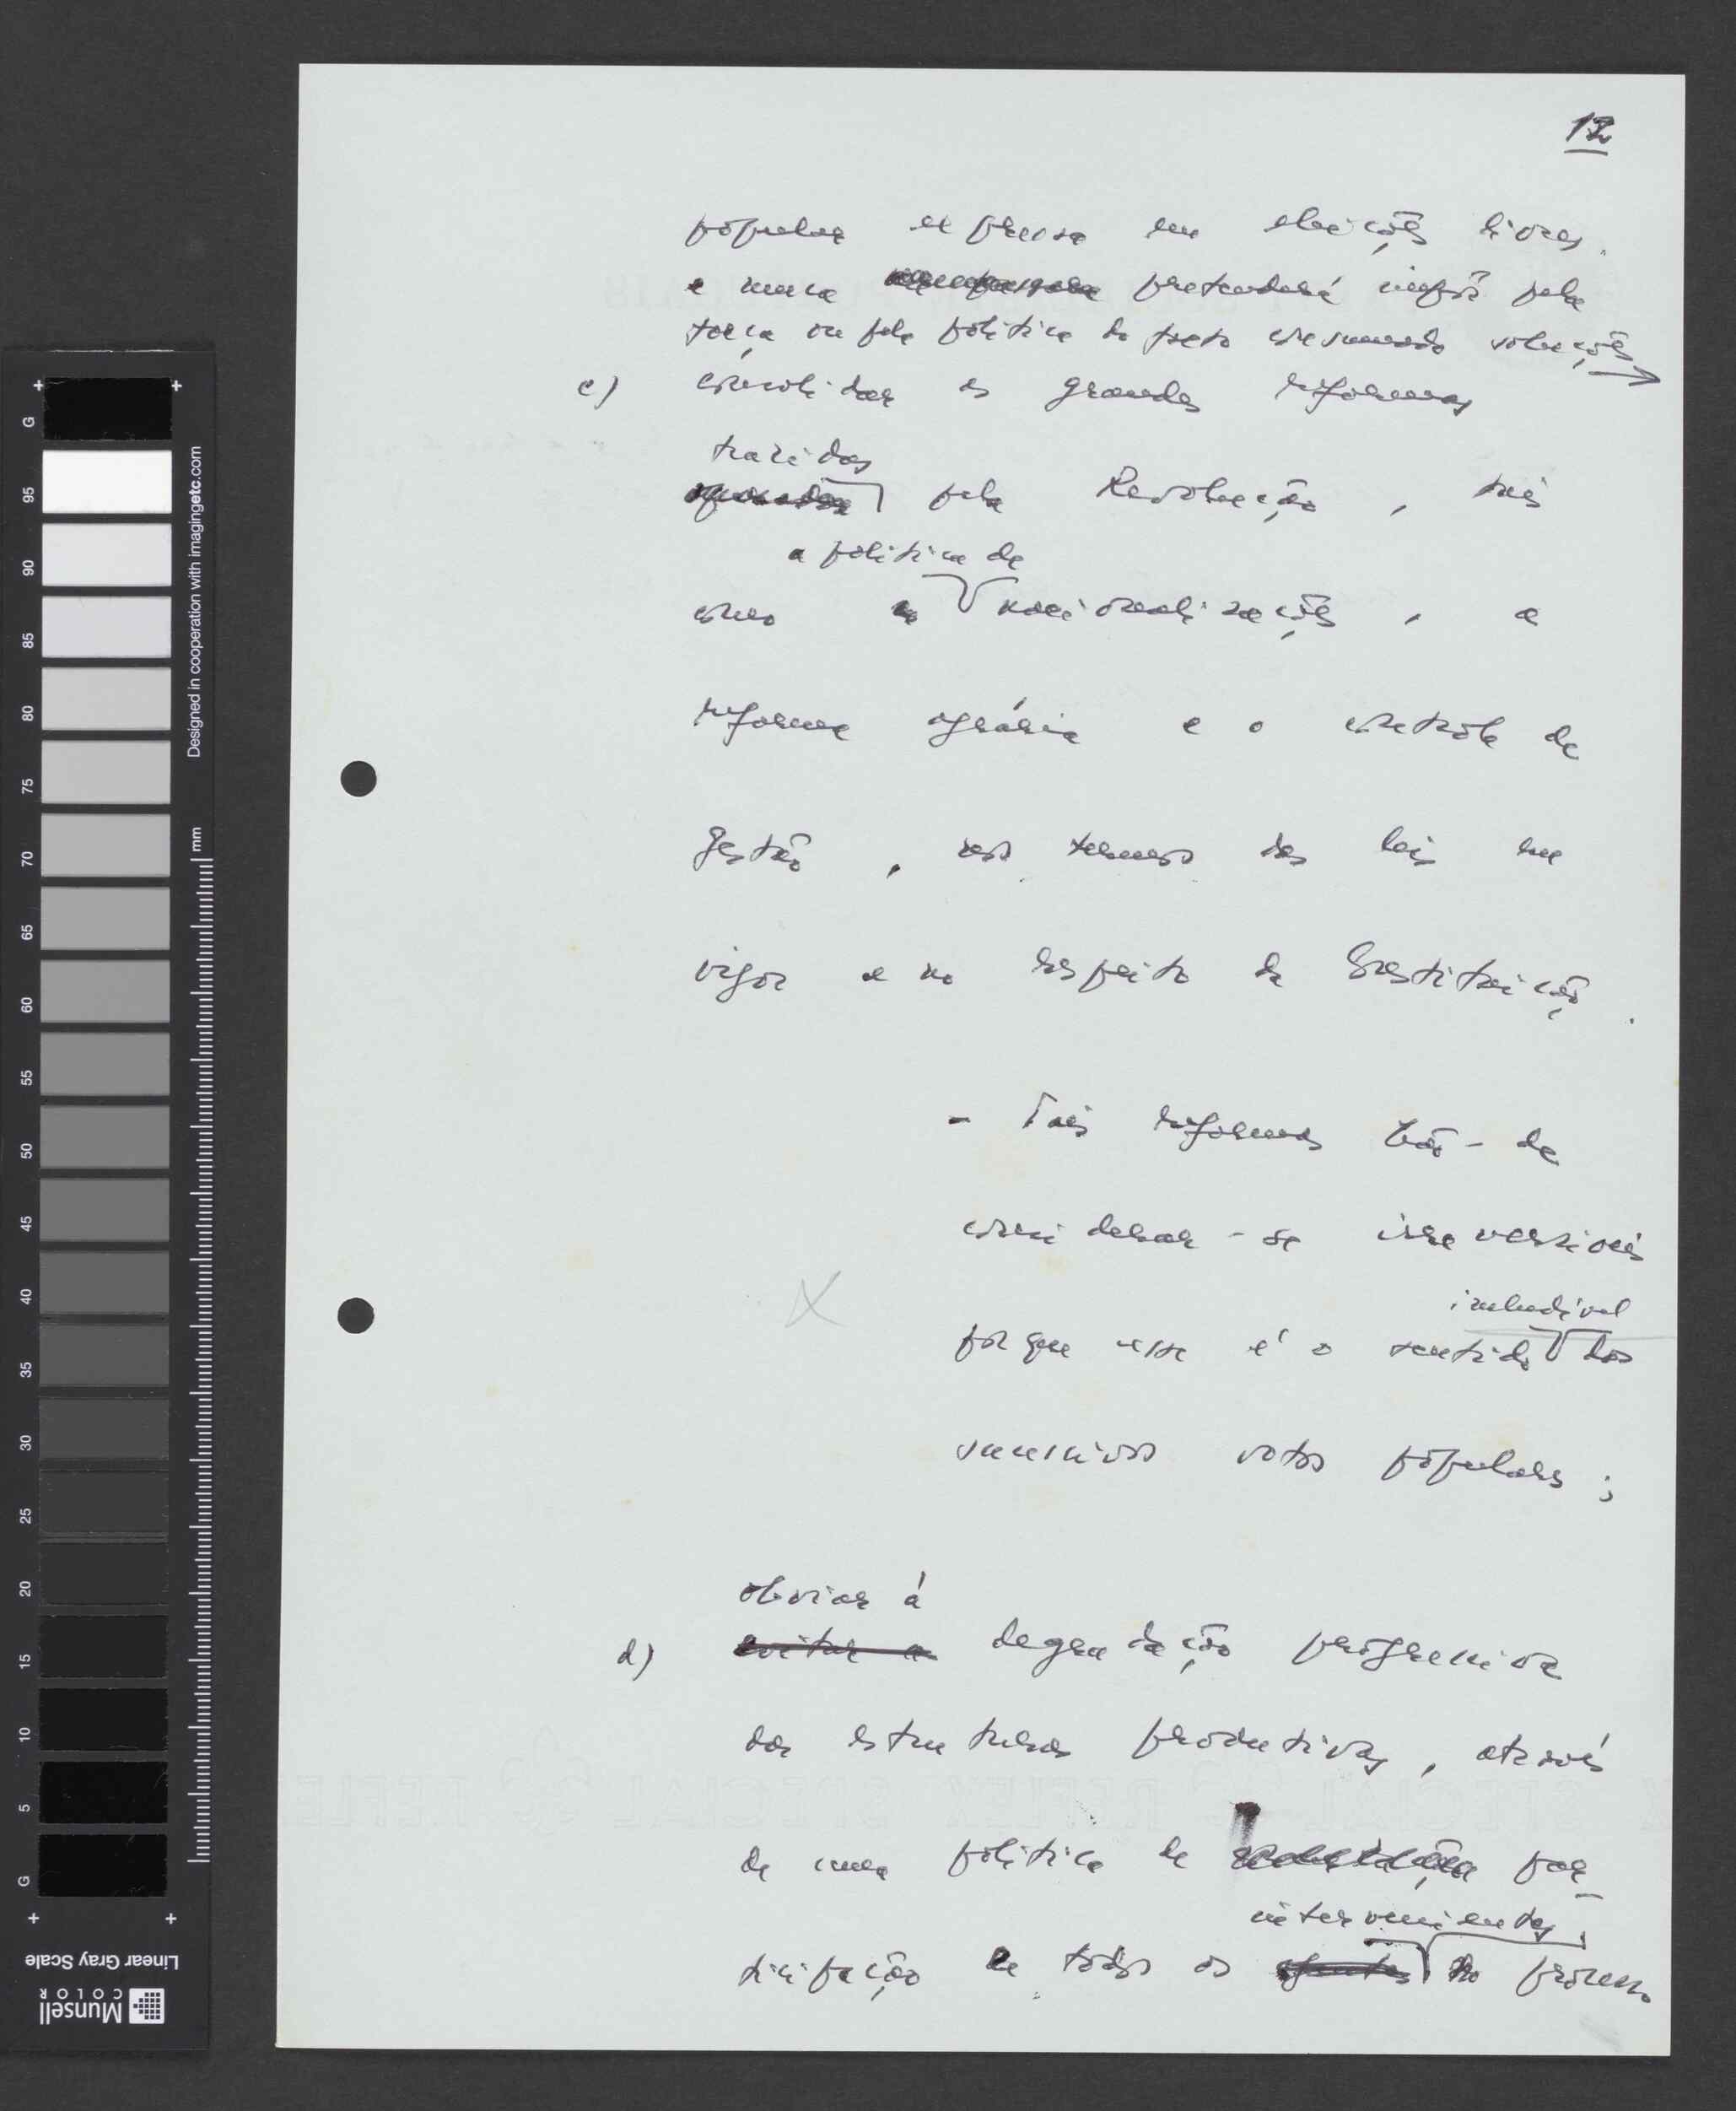 12
popular expressa em eleições livres.
e nunca pretenderá impôr pela
força ou pela política do facto consumado soluções
c) consolidar as grandes reformas
trazidas
pela Revolução, tais
a política de
como nacionalizações, a
reforma agrária e o controle de
gestão, nos termos das leis em
vigor e no respeito da Constituição.
- Tais reformas hão-de
considerar-se irreversíveis
iniludível
porque esse é o sentido dos
sucessivos votos populares;
obviar à
d) evitar a degradação progressiva
das estruturas produtivas, através
de uma política de par-
intervenientes
ticipação de todos os agentes no processo
G 95 90 85 80 75 70 65 60 55 50 45 40 35 30 25 20 15 10 5 G
Designed in cooperation with imagingetc.com
mm
Linear Gray Scale
Munsell
COLOR